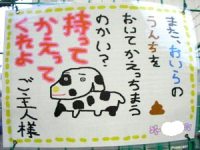 また、おいらの
うんちを
おいてかえっちまう
のかい？
持って
かえって
くれよ
ご主人様